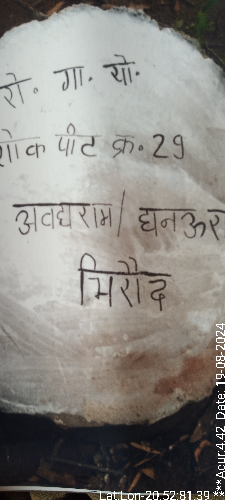 रो. गा. यो.
शोक पीट क्र. 29
अवधराम/ घनऊर
भिरौद
Lat,Lon-20.52.81.39
***Acur:4.42, Date: 19-08-2024